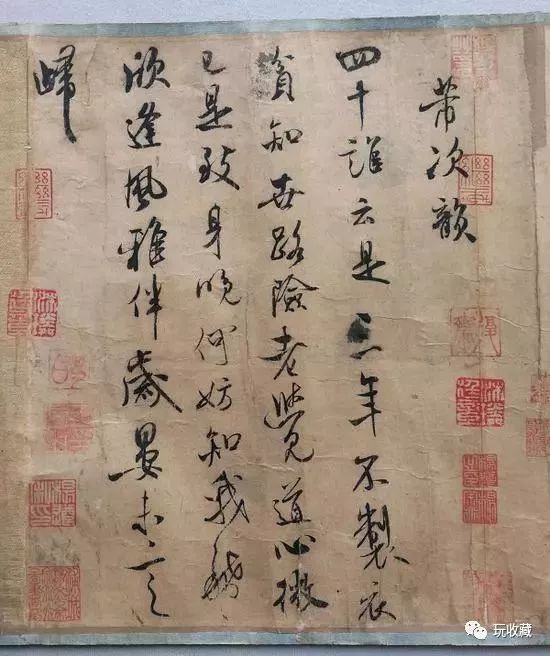 芾次韻
四十誰云是三年不製衣
貧知世路險老覺道心微
已是致身晚何妨知我稀
欣逢風雅伴歲晏未言
歸
玩收藏